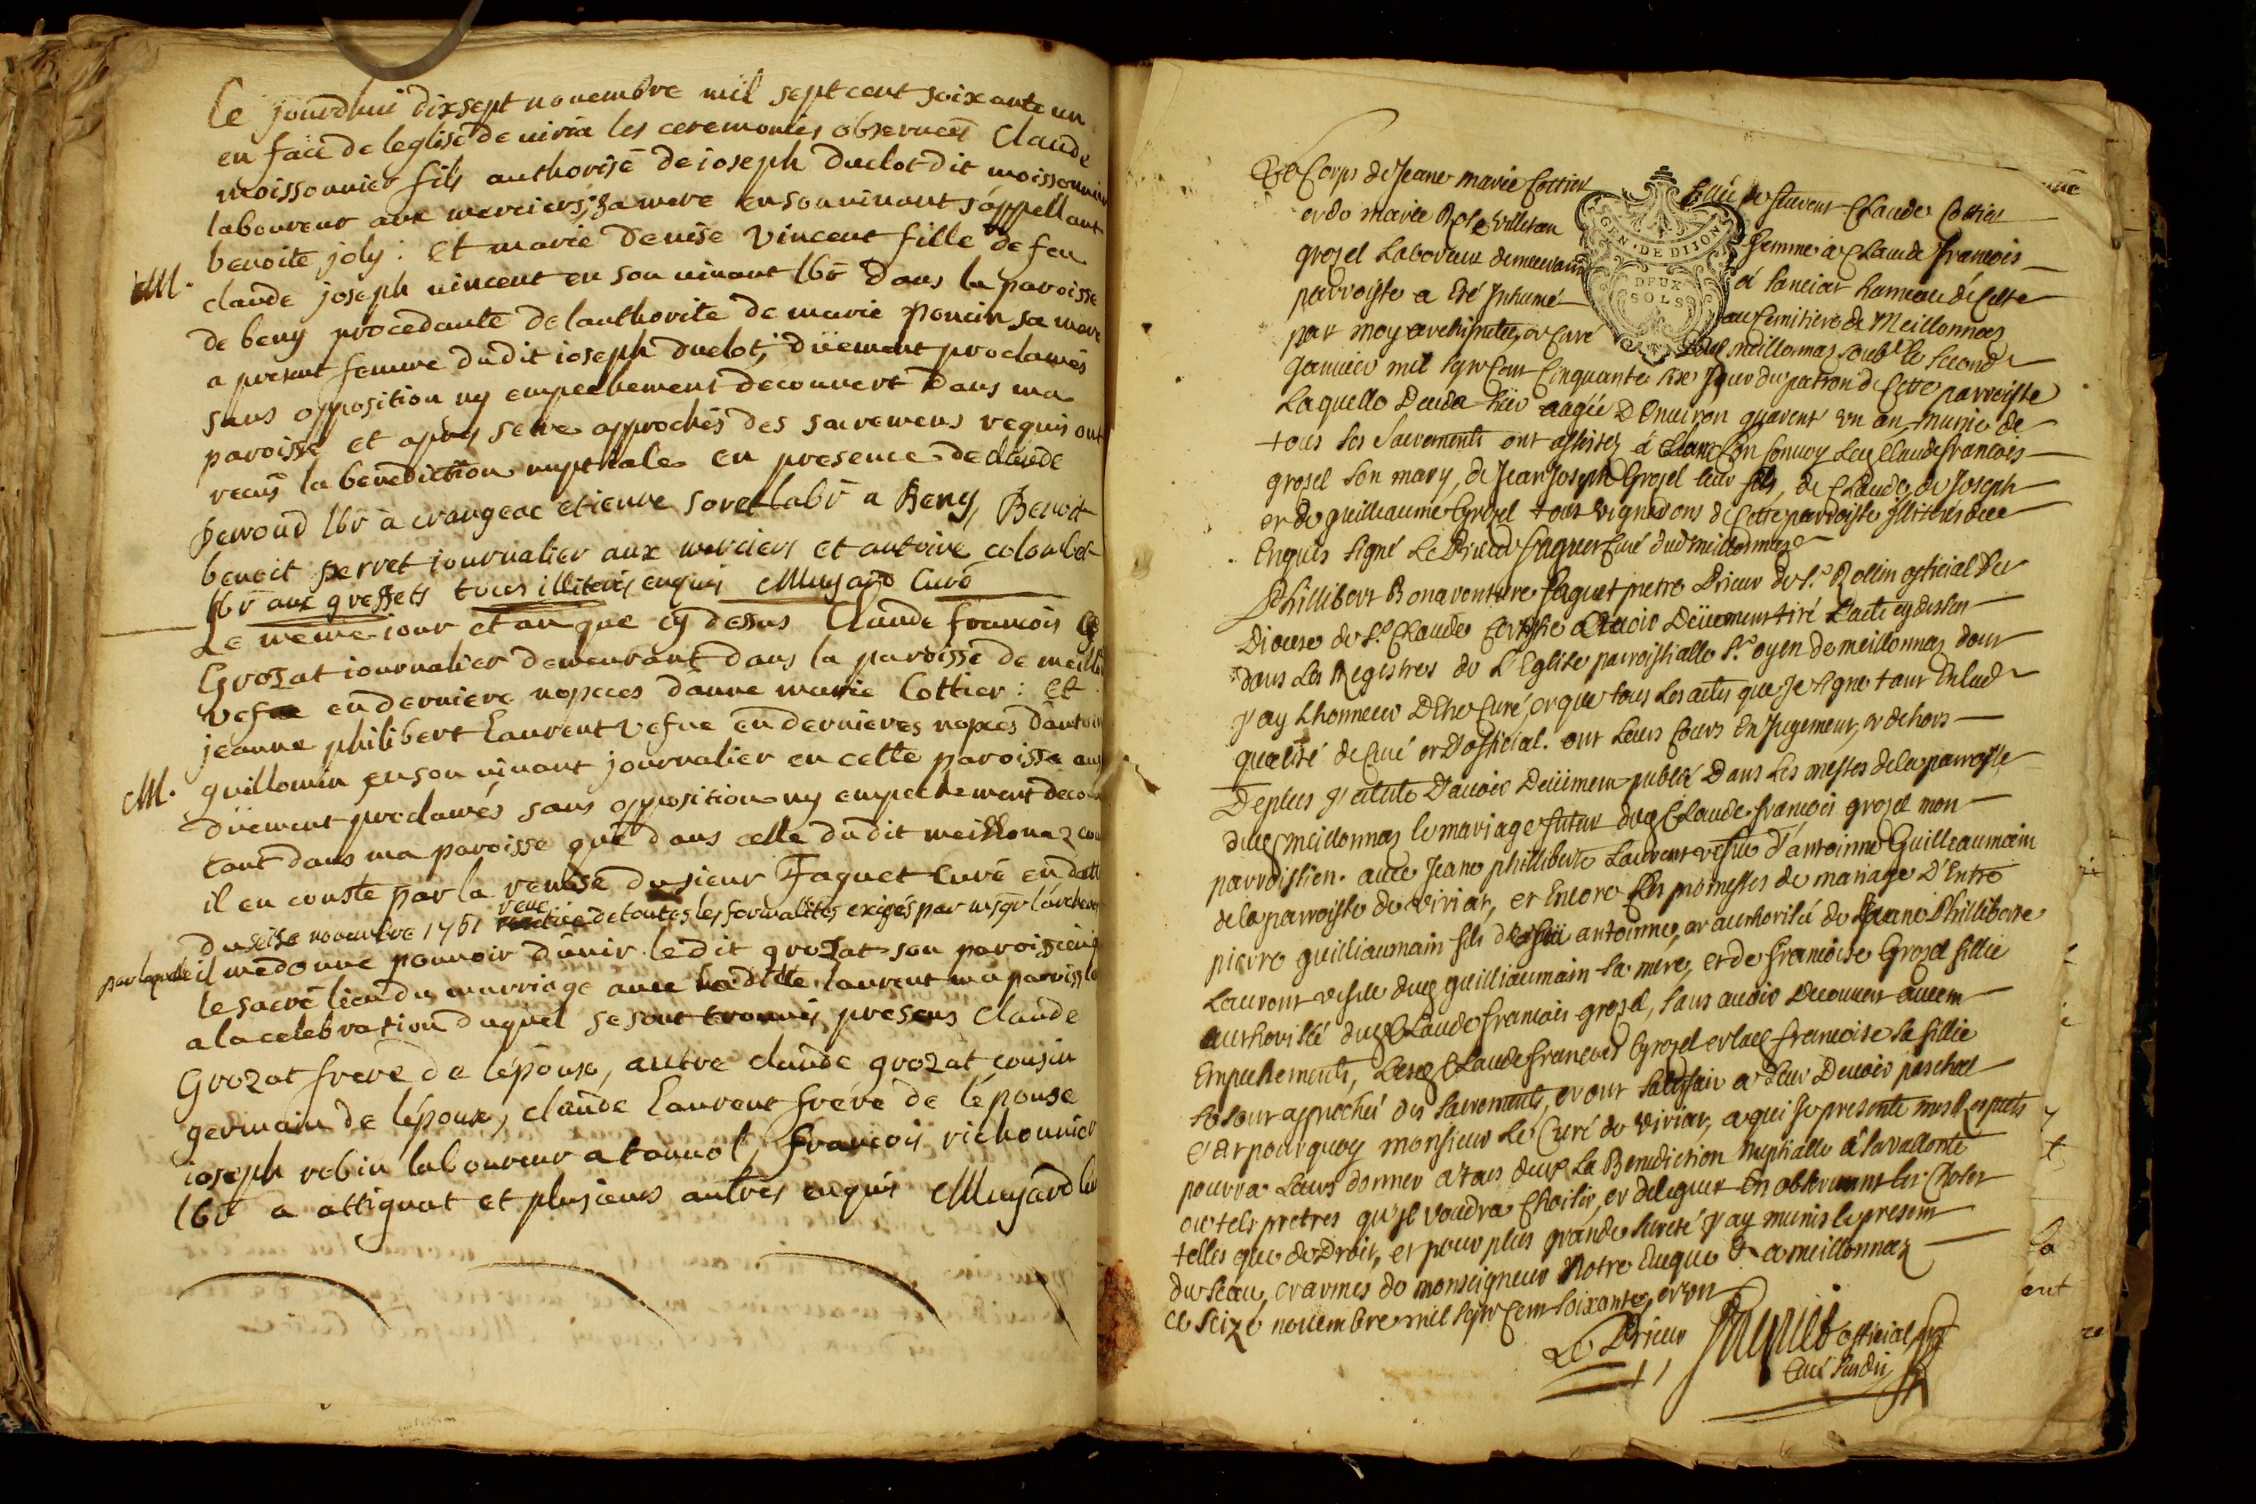 Ce jourdhui dixsept novembre mil sept cent soixante un
en face de leglise de viria les ceremonies observees Claude
moissonnier fils authorisé de joseph duclot dit moissonnier
laboureur aux merciers, sa mere en son vivant s'appellant
benoite joly : et marie denise vincent fille de feu
M.
claude joseph vincent en son vivant lbr dans la paroisse
de beny procedante de lauthorite de marie poncin sa mere
a present femme dudit joseph duclot, düement proclamés
sans opposition ny empechement decouvert dans ma
paroisse et apres setre approchés des sacremens requis ont
recus la benediction nuptiale en presence de claude
perroud lbr a crangeac etienne soret labr a Beny, Benoit
benoit perret journalier aux merciers et antoine colomber
lbr aux greffets tous illiterés enquis Munjard Curé
Le meme jour et an que cy dessus Claude francois
Grozat journalier demeurant dans la paroisse de meillo
vefue en derniere nopces danne marie Cottier : et
jeanne philibert laurent vefue en dernieres nopces dantoin
M.
guillomin en son vivant journalier en cette paroisse aus
düement proclamés sans opposition ny empechement decou
tant dans ma paroisse que dans celle dudit meillonaz com
il en conste par la remise du sieur Faquet curé en datte
du seise novembre 1761 de toutes les formalites exigés par msgr larcheveq
par laquelle il me donne pouvoir dunir ledit grozat son paroissien p
le sacré lien du marriage avec ladite laurent ma paroissi
a la celebration duquel se sont trouvés presens claude
Grozat frere de lépoux, autre claude grozat cousin
germain de lépoux, claude laurent frere de lépouse
joseph robin laboureur a tannol, francois richonnier
lbr a attignat et plusieurs autres enquis Munjard Cu
Le Corps de Jeane marie Cottier fille de Laurent Claude Cottier
et de marie Rose villetan femme a Claude francois
GEN. DE DIJON
DEUX SOLS
grosel Laboureur demeurant a Sanciat hameau de Cette
parroisse a été Inhumé au Cemitiere de Meillonnaz
par moy archiprêtre, et Curé dud meillonnaz soub le second
janvier mil sept cent Cinquante six jour du patron de Cette parroisse
Laquelle deceda hier aagée d'Environ quarent un an munie de
tous les sacrements ont assistez a son convoy led Claude francois
grosel son mary, de Jean Joseph Grosel leur fils, de Claude, de Joseph
et de guilleaume Grosel tous vignerons de Cette parroisse Illiterés de ce
Enquis signé Le Prieur faguet Curé dud meillonnaz
Phillibert Bonaventure faguet pretre Prieur de St Rollin official du
Diocese de St Claude Certifie avoir Deüement tiré L'acte cy dessus
dans Les Registres de L'Eglise parroissialle St oyen de meillonnaz dont
j'ay L'honneur D'Etre Curé, et que tous Les actes que je signe tant En lad
qualité de curé et d'official. ont Leurs cours En Jugement, et dehors
De plus j'atteste D'avoir Deüement publié Dans Les messes de la parroisse
dud meillonnaz le mariage futur dud Claude francois grosel mon
parroissien. avec Jeane phillibert Laurent vefue d'antoinne Guilleaumain
de la parroisse de viriat, et Encore Les promesses de mariage D'Entre
pierre guilliaumain fils de feu antoinne, et authorisé de Jeane Phillibert
Laurent vefve dud guilliaumain sa mere, et de francoise Grosel fillie
authorisée dud Claude francois grosel, sans avoir Decouvert aucun
Empechements, Lesd Claude francois Grosel et lad francoise sa fillie
se sont approchés des sacrements, et ont satisfait a Leur Devoir paschal
c'est pourquoy monsieur Le Curé de viriat, a qui je presente mes Respects
pourra Leurs donner a tous deux La Benediction nuptialle
ou tels pretres qu'il voudra Choisir, et deleguer En observant les Choses
telles que de Droit, et pour plus grande sureté j'ay munis le present
du seau, et armes de monseigneur Notre Eveque a meillonnaz
ce seize novembre mil sept cent soixante, et un
Le Prieur faguet official
Curé susdit